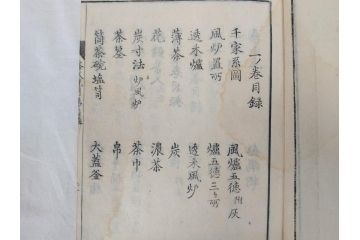 一ノ巻目録
千家系圖
風炉置所
透木爐
薄茶
花
炭寸法 炉風炉
茶墓
筒茶碗塩笥
風爐五德 附灰
爐五德三ヶ所
透木風炉
炭
濃茶
茶巾
帛
大蓋釜